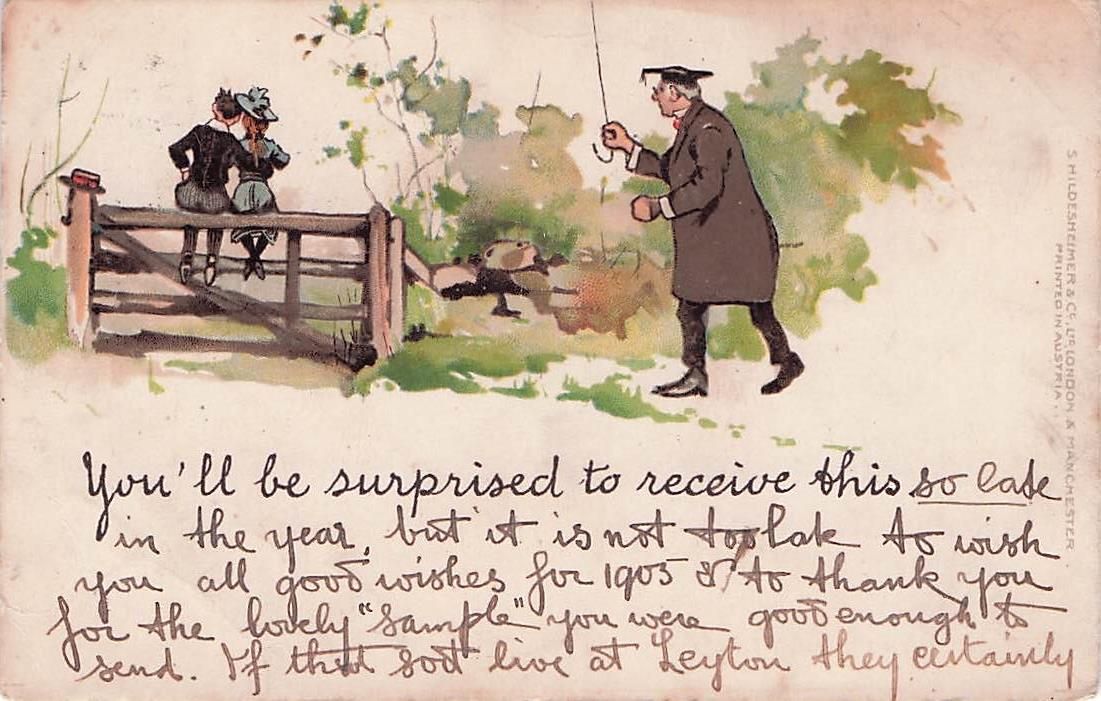 You'll be surprised to receive this so late
in the year, but it is not too late to wish
you all good wishes for 1905 & to thank you
for the lovely "Sample" you were good enough to
send. If that sort live at Leyton they certainly
S. HILDESHEIMER & Co., LTD. LONDON & MANCHESTER
PRINTED IN AUSTRIA.